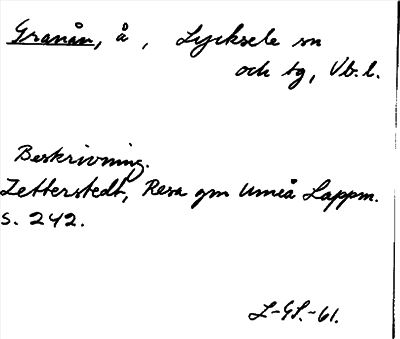 Granån, å, Lycksele sn
och tg, Vb. l.
Beskrivning.
Zetterstedt, Resa gm Umeå Lappm.
s. 242.